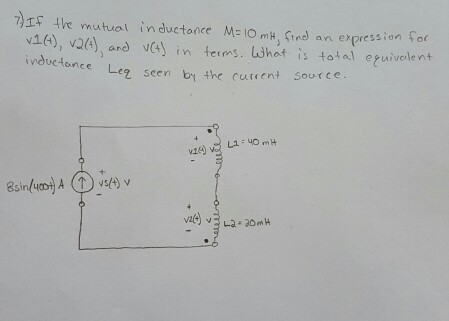 7) If the mutual inductance M=10 mH, find an expression for
v1(t), v2(t), and v(t) in terms. What is total equivalent
inductance Leq seen by the current source.
+
v1(t) v
-
L1=40 mH
8sin(400t) A
+
vs(t) v
-
+
v2(t) v
-
L2=20mH